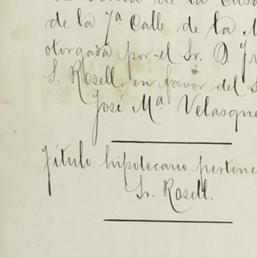 de la Casa
de la 7ª Calle de la M
otorgada por el Sr. D. Jo
S. Rosell, en favor del S
José Mª Velasque
Título hipotecario pertene
Sr. Rosell.